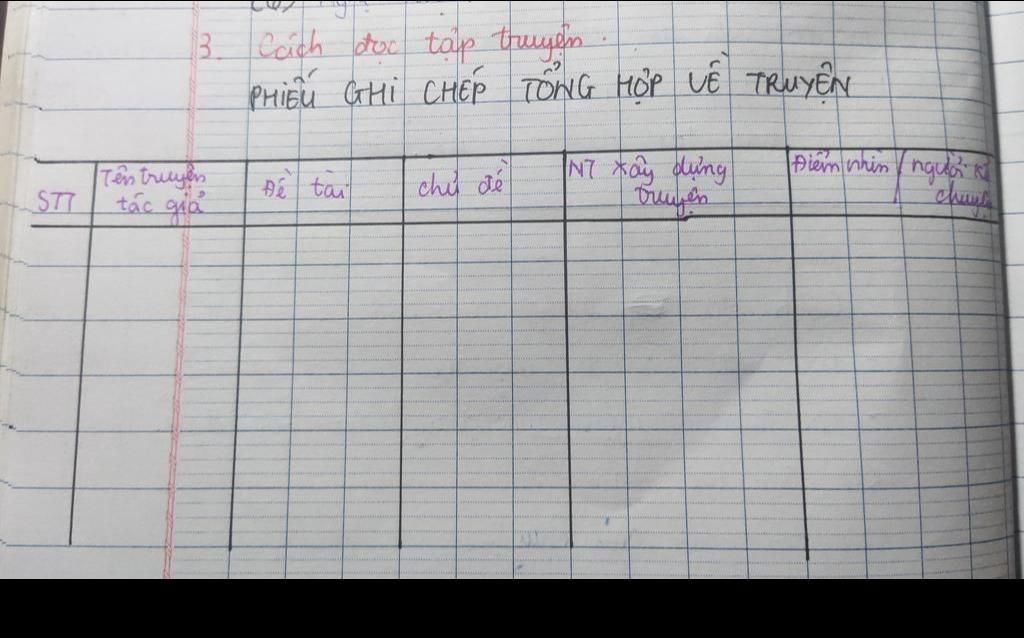 3. Cách đọc tập truyện.
PHIẾU GHI CHÉP TỔNG HỢP VỀ TRUYỆN
STT
Tên truyện
tác giả
Đề tài
chủ đề
NT xây dựng
truyện
Điểm nhìn / người kể
chuyện